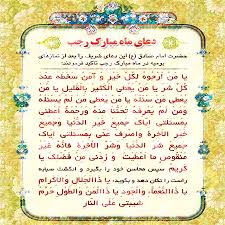 دعای ماه مبارک رجب
حضرت امام صادق (ع) این دعای شریف را بعد از نمازهای
یومیه در ماه مبارک رجب تاکید فرمودند:
یا من ارجوه لکل خیر و آمن سخطه عند
کل شر یا من یعطی الکثیر بالقلیل یا من
یعطی من سئله یا من یعطی من لم یسئله
و من لم یعرفه تحننا منه و رحمة اعطنی
بمسئلتی ایاک جمیع خیر الدنیا و جمیع
خیر الآخرة واصرف عنی بمسئلتی ایاک
جمیع شر الدنیا وشر الآخرة فانه غیر
منقوص ما اعطیت و زدنی من فضلک یا
کریم سپس محاسن خود را بگیرد و انگشت سبابه
راست را تکان دهد و بگوید: یا ذاالجلال والاکرام
یا ذاالنعماء والجود یا ذاالمن والطول حرم
شیبتی علی النار